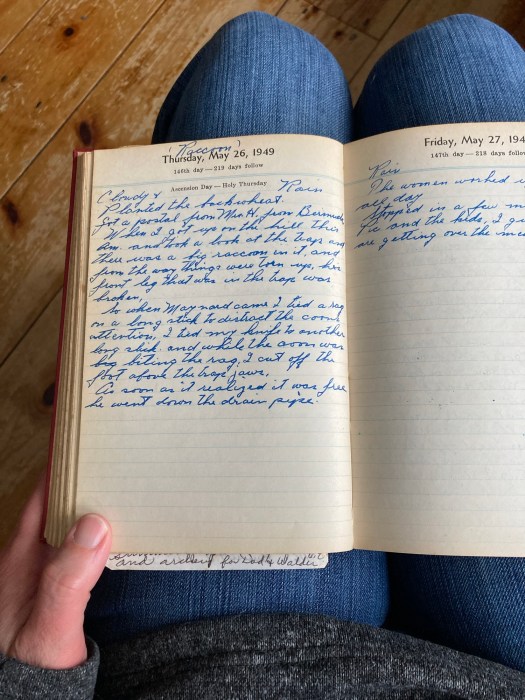 (Raccoon)
Thursday, May 26, 1949
146th day — 219 days follow
Ascension Day — Holy Thursday
Cloudy & Rain
Planted the buckwheat.
Got a postal from Mrs H. from Bermuda
When I got up on the hill this
am. and took a look at the traps and
there was a big raccoon in it, and
from the way things were torn up, his
front leg that was in the trap was
broken,
So when Maynard came I tied a rag
on a long stick to distract the coons
attention, I tied my knife to another
long stick. and while the coon was
busy biting the rag, I cut off the
foot above the trap jaws,
As soon as it realized it was free
he went down the drain pipe.
and for Dad & Walder
Friday, May 27, 194
147th day — 218 days follow
Rain
The women worked
all day
Stopped in a few m
and the kids, I g
are getting over the